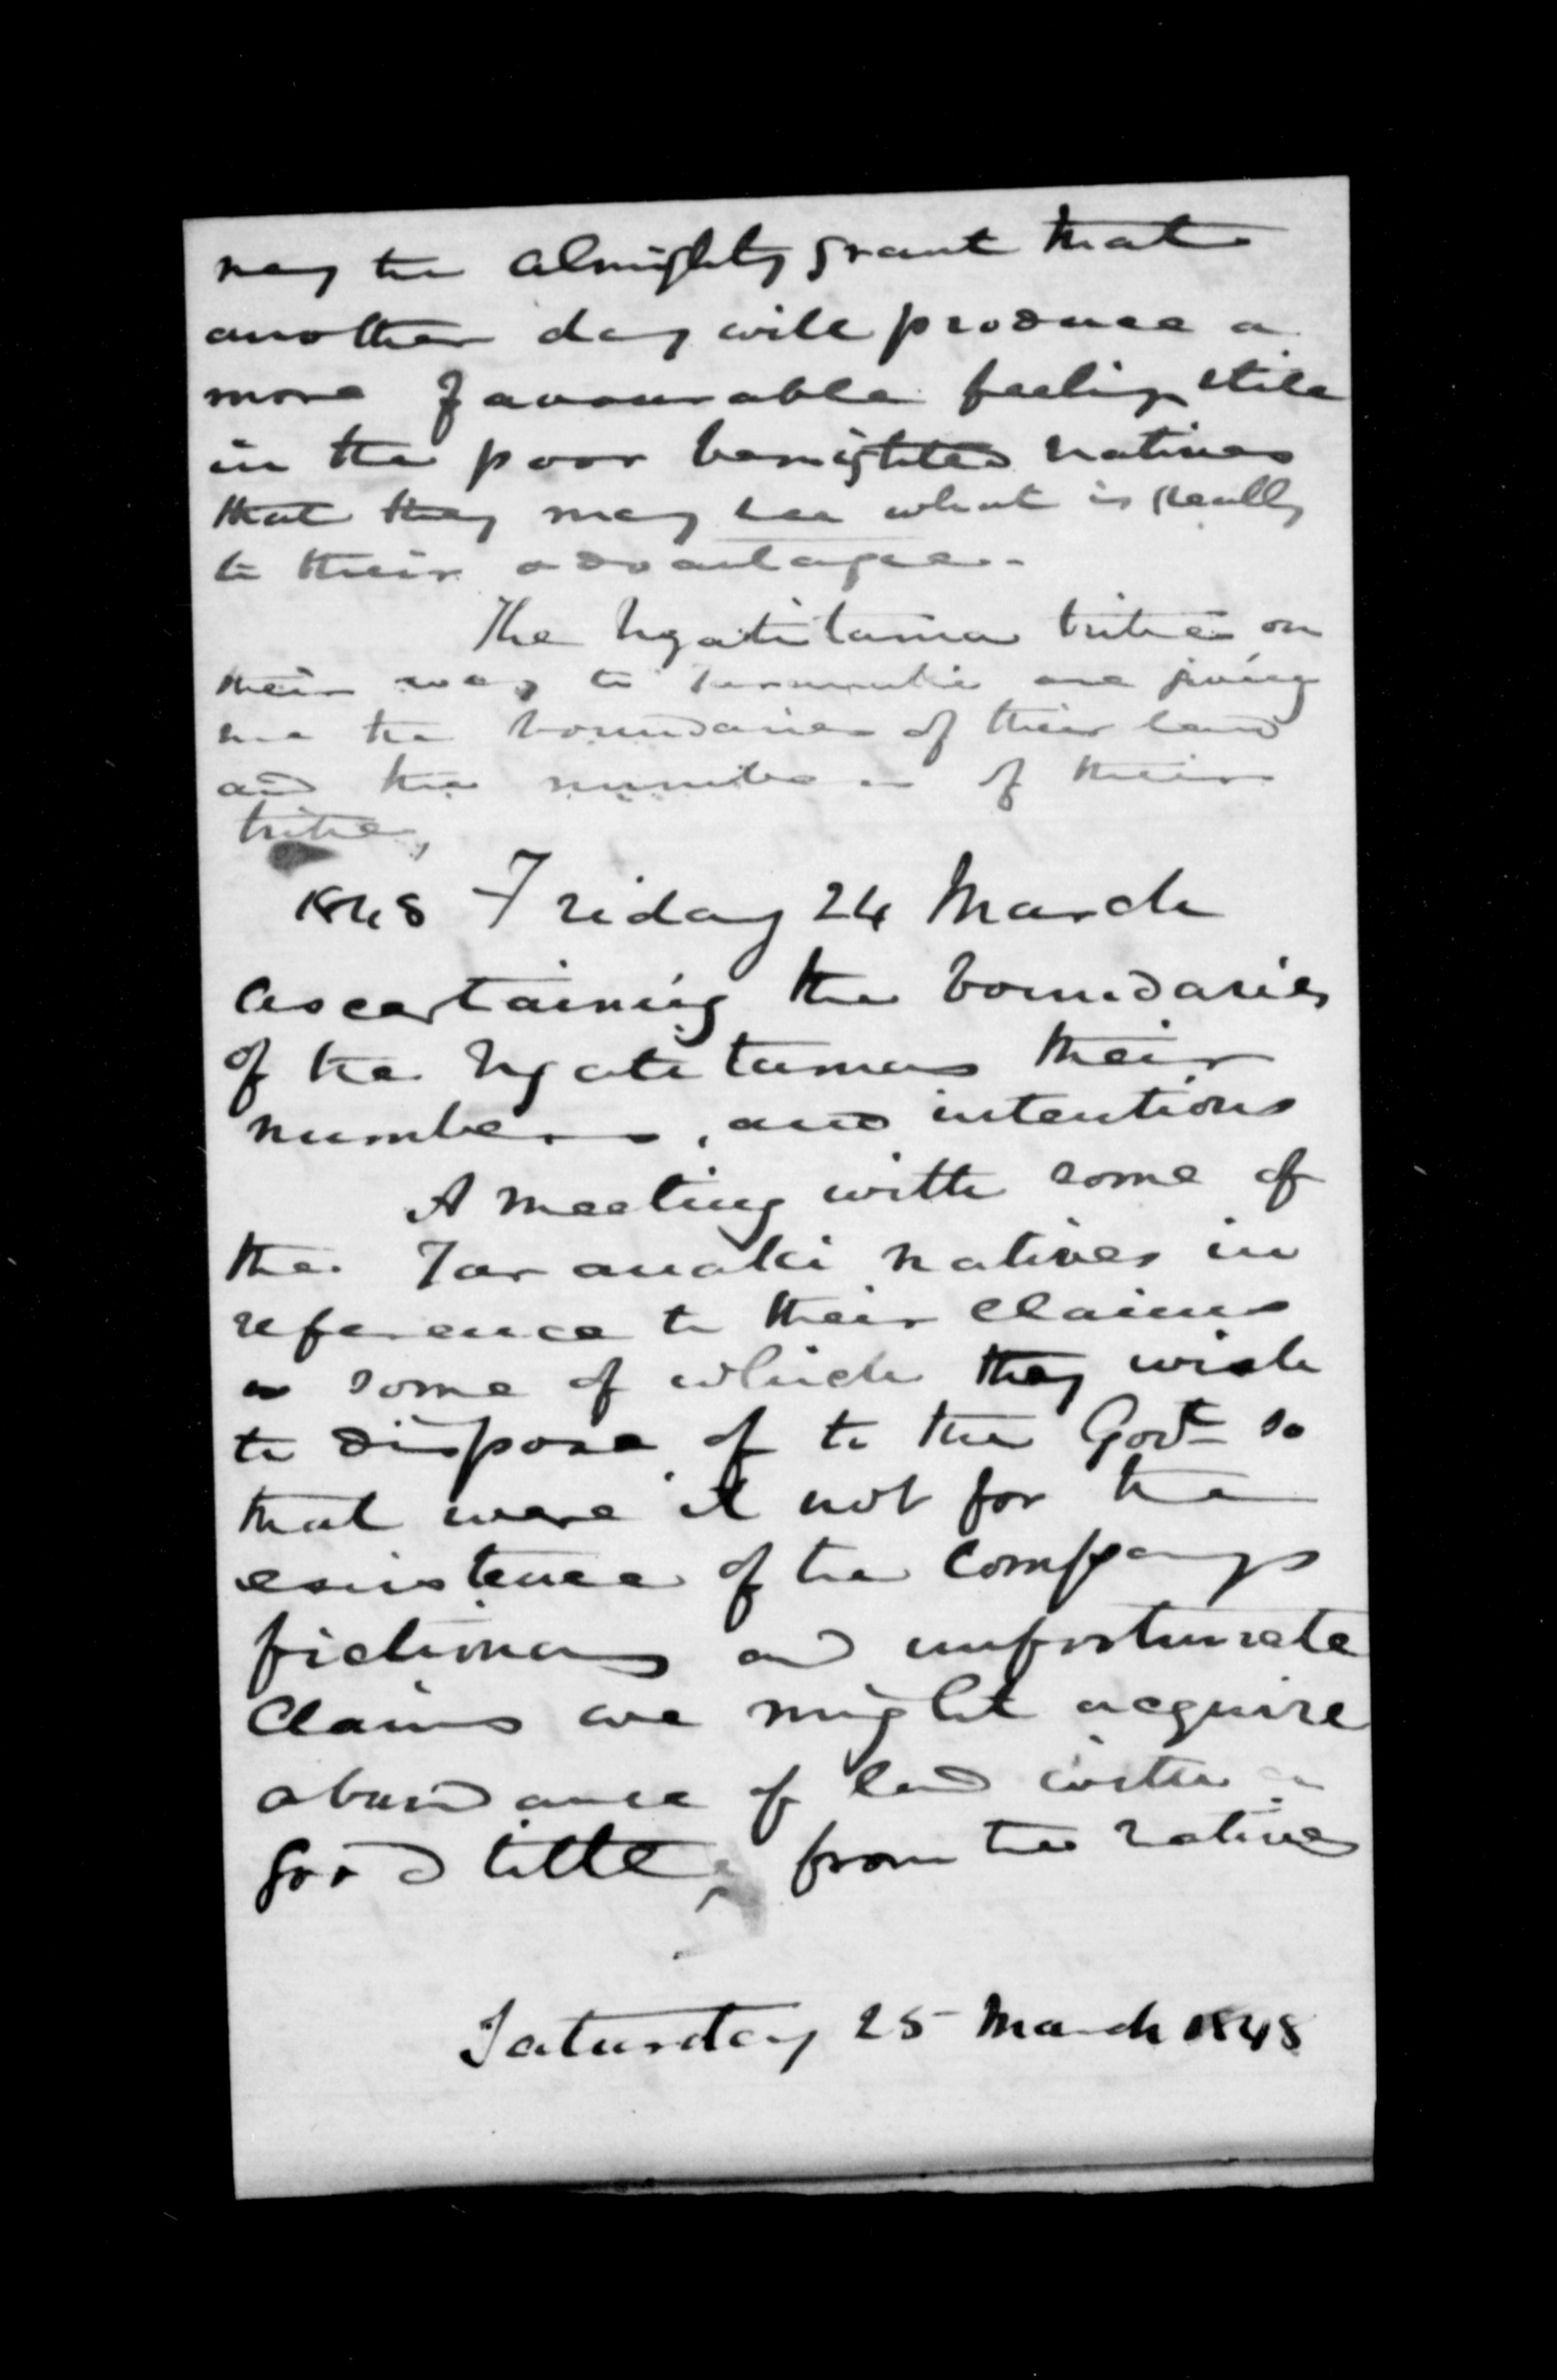 may the Almighty grant that
another day will produce a
more favourable feeling still
in the poor benighted natives
that they may see what is really
to their advantage.
The Ngatitama tribe on
their way to Taranaki are giving
me the boundaries of their land
and the numbers of their
tribe,
1848 Friday 24 March
Ascertaining the boundaries
of the Ngatitamas their
numbers, and intentions
A meeting with some of
the Taranaki natives in
reference to their claims
some of which they wish
to dispose of to the Govt so
that were it not for the
existence of the Companys
and unfortunate
Claims we might acquire
abundance of land with a
good title from the natives
Saturday 25 March 1848